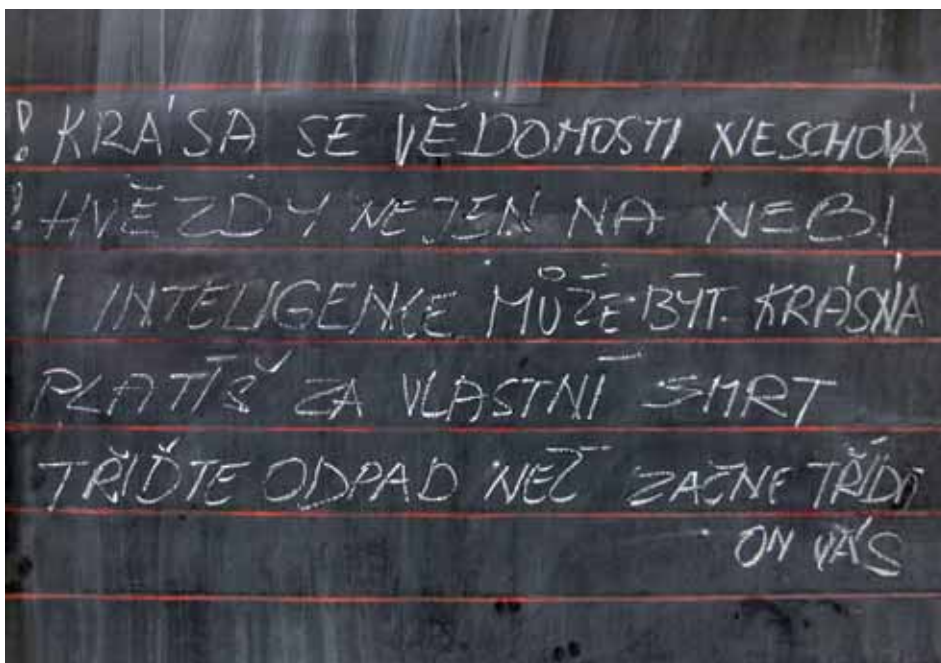 ! KRÁSA SE VĚDOMOSTI NESCHOVÁ
! HVĚZDY NEJEN NA NEBI
I INTELIGENCE MŮŽE BÝT KRÁSNÁ
PLATÍŠ ZA VLASTNÍ SMRT
TŘIĎTE ODPAD NEŽ ZAČNE TŘÍDIT
ON VÁS